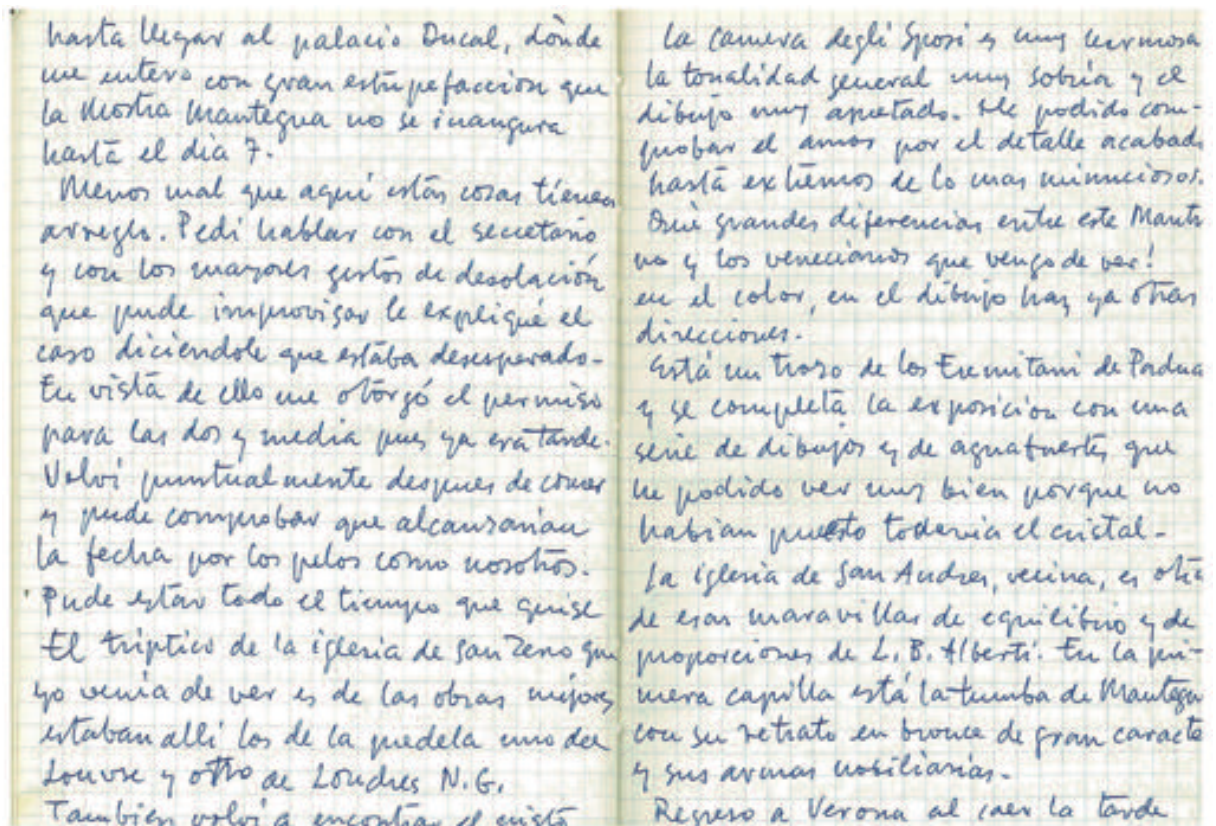 hasta llegar al palacio Ducal, dónde
me entero con gran estupefacción que
la Mostra Mantegna no se inaugura
hasta el dia 7.
Menos mal que aqui estas cosas tienen
arreglo. Pedi hablar con el secretario
y con los mayores gestos de desolación
que pude improvisar le expliqué el
caso diciendole que estaba desesperado-
En vista de ello me otorgó el permiso
para las dos y media pues ya era tarde.
Volvi puntualmente despues de comer
y pude comprobar que alcanzarian
la fecha por los pelos como nosotros.
Pude estar todo el tiempo que quise
El triptico de la iglesia de San Zeno que
yo venia de ver es de las obras mejores
estaban alli los de la predela uno del
Louvre y otro de Londres N.G.
Tambien volvi a encontrar el cristo
La camera degli Sposi es muy hermosa
la tonalidad general muy sobria y el
dibujo muy apretado. He podido com-
probar el amor por el detalle acabado
hasta extremos de lo mas minuciosos.
Qué grandes diferencias entre este Mantua
no y los venecianos que vengo de ver!
en el color, en el dibujo hay ya otras
direcciones.
Está un trozo de los Eremitani de Padua
y se completa la exposicion con una
serie de dibujos y de aguafuertes que
he podido ver muy bien porque no
habian puesto todavia el cristal-
La iglesia de San Andres, vecina, es otra
de esas maravillas de equilibrio y de
proporciones de L.B. Alberti. En la pri-
mera capilla está la tumba de Mantegna
con su retrato en bronce de gran caracte
y sus armas nobiliarias.
Regreso a Verona al caer la tarde